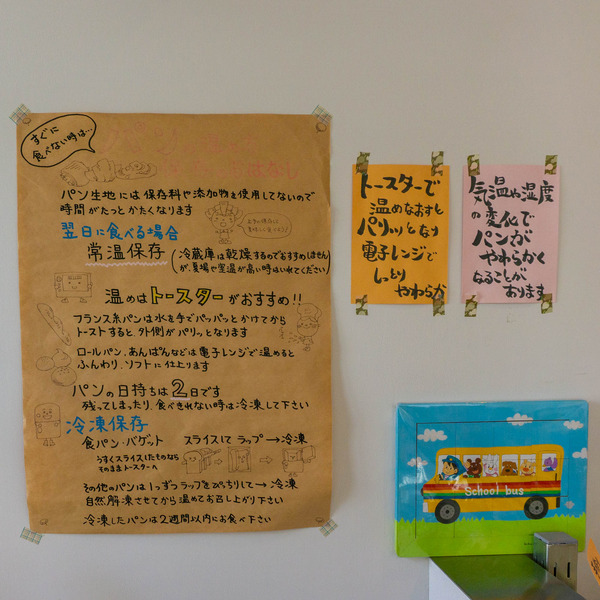 すぐに
食べない時は…
はなし
パン生地には保存料や添加物を使用してないので
時間がたっとかたくなります
翌日に食べる場合
常温保存
(冷蔵庫は乾燥するのでおすすめしません
が、真夏や室温が高い時はいれてください)
温めはトースターがおすすめ!!
フランス系パンは水を手でパッパッとかけてから
トーストすると、外側がパリッとなります
ロールパン、あんぱんなどは電子レンジで温めると
ふんわり、ソフトに仕上ります
パンの日持ちは2日です
残ってしまったり、食べきれない時は冷凍して下さい
冷凍保存
食パン・バゲット スライスしてラップ→冷凍
うすくスライスしたものなら
そのままトースターへ
その他のパンは1つずつラップをぴっちりして→冷凍
自然解凍させてから温めてお召し上がり下さい
冷凍したパンは2週間以内にお食べ下さい
トースターで
温めなおすと
パリッとなり
電子レンジで
しっとり
やわらか
気温や湿度
の変化で
パンが
やわらかく
なることが
あります
School bus